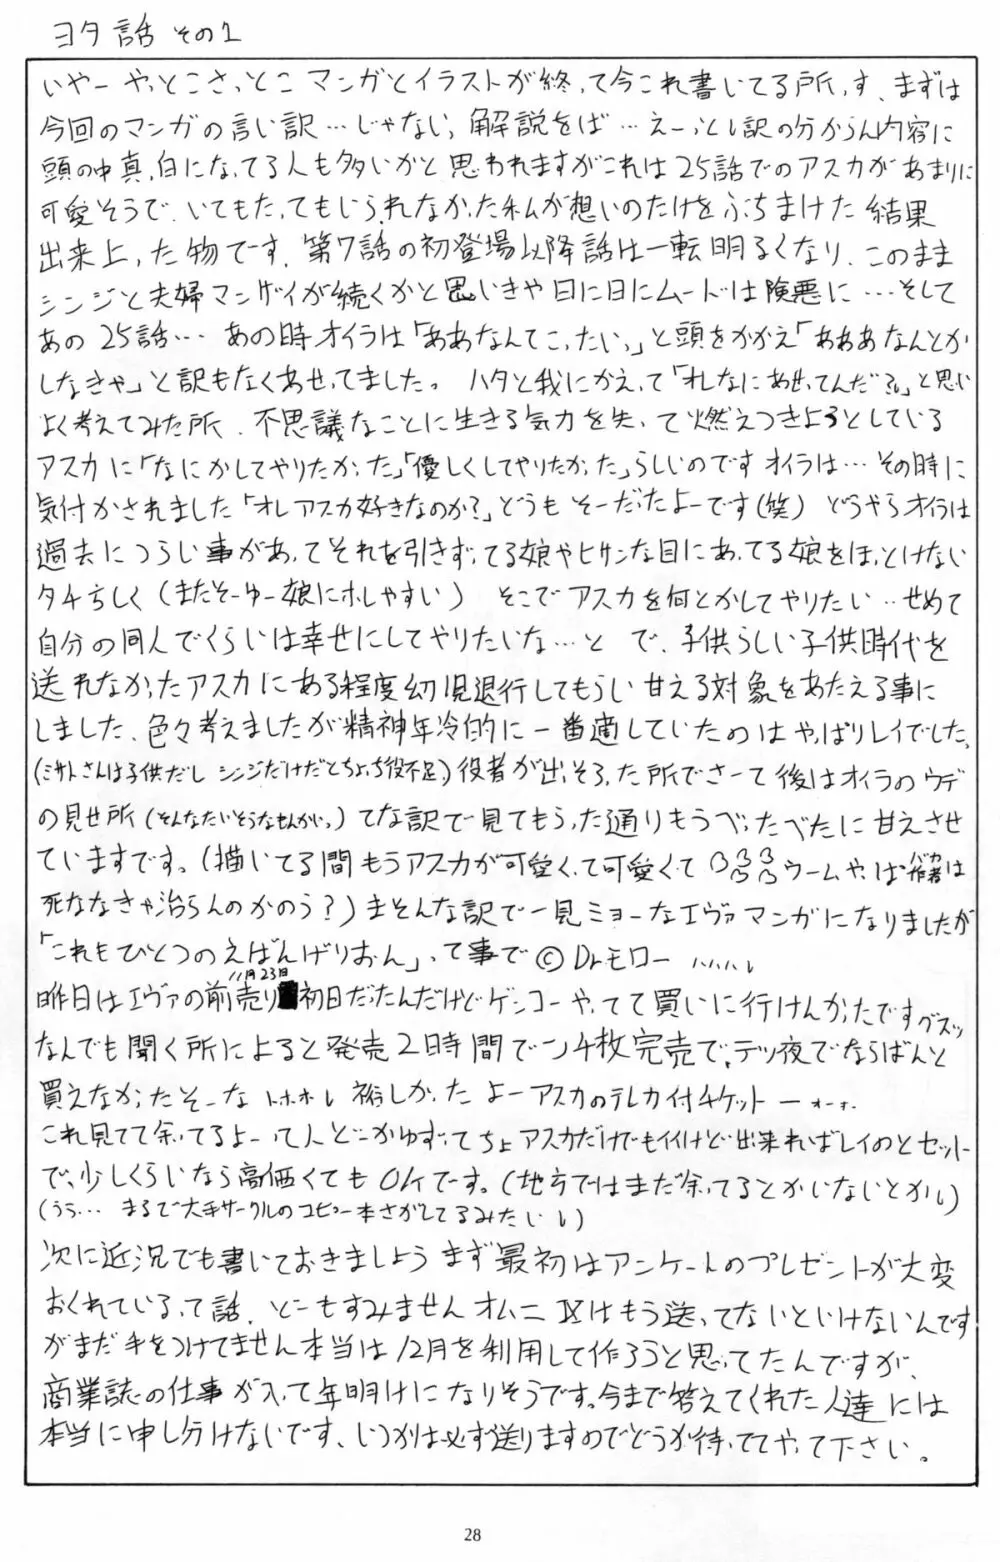 ヨタ話 その1
いやーやっとこさっとこマンガとイラストが終って今これ書いてる所っす、まずは
今回のマンガの言い訳…じゃない、解説をば…えーっとし訳の分からん内容に
頭の中真っ白になってる人も多いかと思われますがこれは25話でのアスカがあまりに
可愛そうで、いてもたってもいられなかった私が想いのたけをぶちまけた結果
出来上った物です、第7話の初登場以降話は一転明るくなり、このまま
シンジと夫婦マンザイが続くかと思いきや日に日にムードは険悪に…そして
あの25話… あの時オイラは「ああなんてこったいっ」と頭をかかえ「あああなんとか
しなきゃ」と訳もなくあせってました。ハタと我にかえって「オレなにあせってんだ?」と思い
よく考えてみた所、不思議なことに生きる気力を失って燃えつきよろとしている
アスカに「なにかしてやりたかった」「優しくしてやりたかった」らしいのですオイラは…その時に
気付かされました「オレアスカ好きなのか?」どうもそーだったよーです(笑) どうやらオイラは
過去につらい事があってそれを引きずってる娘やヒサンな目にあってる娘をほっとけない
タチらしく(またそーゆー娘にホレやすい) そこでアスカを何とかしてやりたい‥せめて
自分の同人でくらいは幸せにしてやりたいな…と で、子供らしい子供時代を
送れなかったアスカにある程度幼児退行してもらい甘える対象をあたえる事に
しました、色々考えましたが精神年冷的に一番適していたのはやっぱりレイでした。
(ミサトさんは子供だし シンジだけだとちょっち役不足)役者が出そろった所でさーて後はオイラのウデ
の見せ所(そんなたいそうなもんかいっ)てな訳で見てもらった通りもうべったべたに甘えさせ
ていますです。(描いてる間もうアスカが可愛くって可愛くて ウームやっぱ作者バカは
死ななきゃ治らんのかのう?)まそんな訳で一見ミョーなエヴァマンガになりましたが
「これもひとつのえばんげりおん」って事で ©Dr.モロー
昨日11月23日はエヴァの前売り初日だったんだけどゲンコーやってて買いに行けんかったですグスッ
なんでも聞く所によると発売2時間で一ン4枚完売で、テツ夜でならばんと
買えなかったそーな トホホレ 裕しかったよーアスカのテレカ付チケットーォーォ.
これ見てて余ってるよーって人どーかゆずってちょアスカだけでもイイけど出来ればレイのとセット
で、少しくらいなら高価くてもOKです。(地方ではまだ余ってるとかいないとかい)
(うぅ… まるで大手サークルのコピー本さがしてるみたいい)
次に近況でも書いておきましょう まず最初はアンケートのプレゼントが大変
おくれているって話、どーもすみませんオムニⅨはもう送ってないといけないんです
がまだ手をつけてません本当は12月を利用して作ろうと思ってたんですが、
商業誌の仕事が入って年明けになりそうです。今まで答えてくれた人達には
本当に申し分けないです、いつかは必ず送りますのでどうか待っててやって下さい。
28